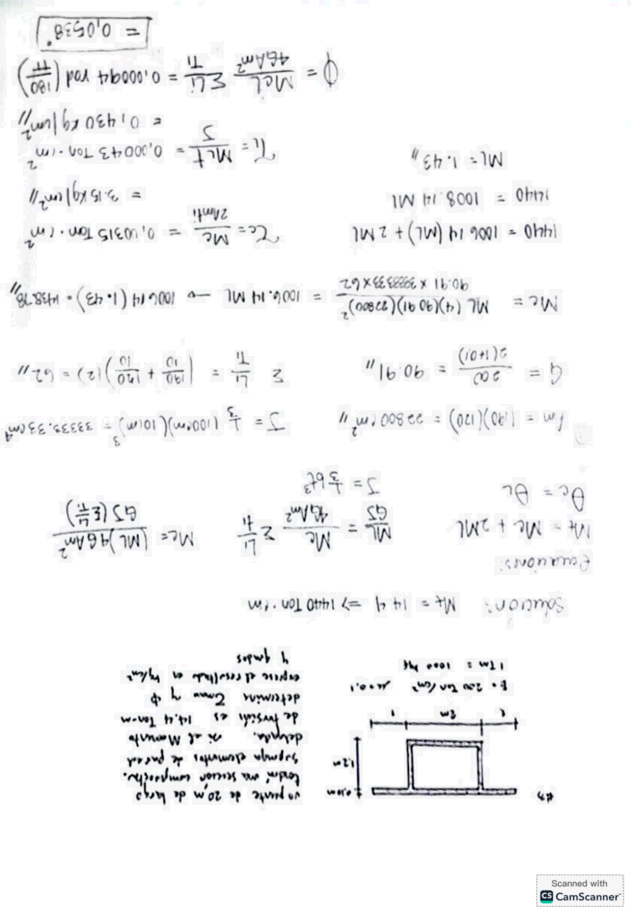 #3
un puente de 20 m de largo
tendrá una sección compuesta.
suponga elementos de pared
delgada. si el Momento
de torsión es 14.4 Ton-m
determine τmax y φ
exprese el resultado en kg/cm²
y grados
0.10m
1.2m
1 2m 1
E = 200 Ton/cm² μ = 0.1
1 Tm = 1000 kg
Solución: Mt = 14.4 => 1440 Ton·cm
Ecuaciones:
Mt = Mc + 2ML
θc = θL
ML/GJ = Mc/4GAm² Σ Li/ti
Mc = (ML)4GAm²/GJ(Σ Li/Ti)
J = 1/3 bt³
Am = (190)(120) = 22800 cm²//
J = 1/3 (100cm)(10cm)³ = 33333.33cm⁴
G = 200/2(1+0.1) = 90.91//
Σ Li/Ti = (190/10 + 120/10)(2) = 62//
Mc = ML (4)(90.91)(22800)²/90.91 x 33333.33x62 = 1006.14 ML → 1006.14 (1.43) = 1438.78//
1440 = 1006.14 (ML) + 2ML
1440 = 1008.14 ML
ML = 1.43//
τc = Mc/2Amti = 0,00315 Ton·cm²
= 3.15 kg/cm²//
τL = MLt/J = 0,00043 Ton·cm²
= 0,430 kg/cm²//
φ = McL/4GAm² ΣLi/Ti = 0,00094 rad (180/π)
= 0,0538°
Scanned with
CS CamScanner